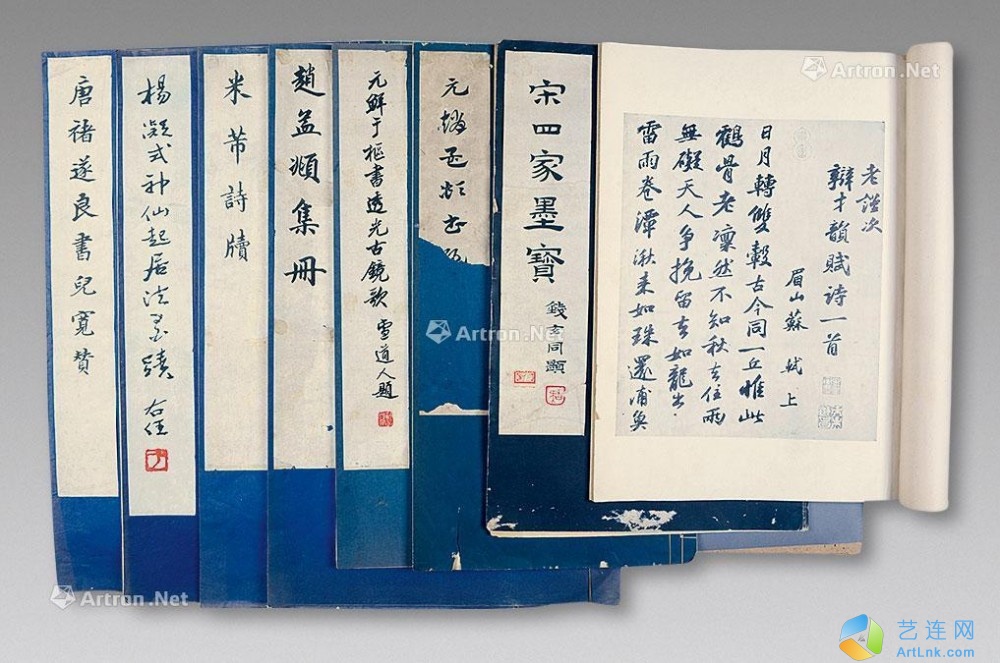 唐褚遂良書兒寬贊
楊凝式神仙起居法墨蹟 右任
米芾詩牘
趙孟頫集冊
元鮮于樞書透光古鏡歌 雪道人題
元趙孟頫書
宋四家墨寶
錢玄同題
老謹次
辯才韻賦詩一首
眉山蘇軾上
日月轉雙轂古今同一丘惟此
鶴骨老凛然不知秋去住兩
無礙天人争挽留去如龍出
雷雨卷潭湫来如珠還浦魚
Artron.Net
Artron.Net
Artron.Net
艺连网
ArtLnk.com